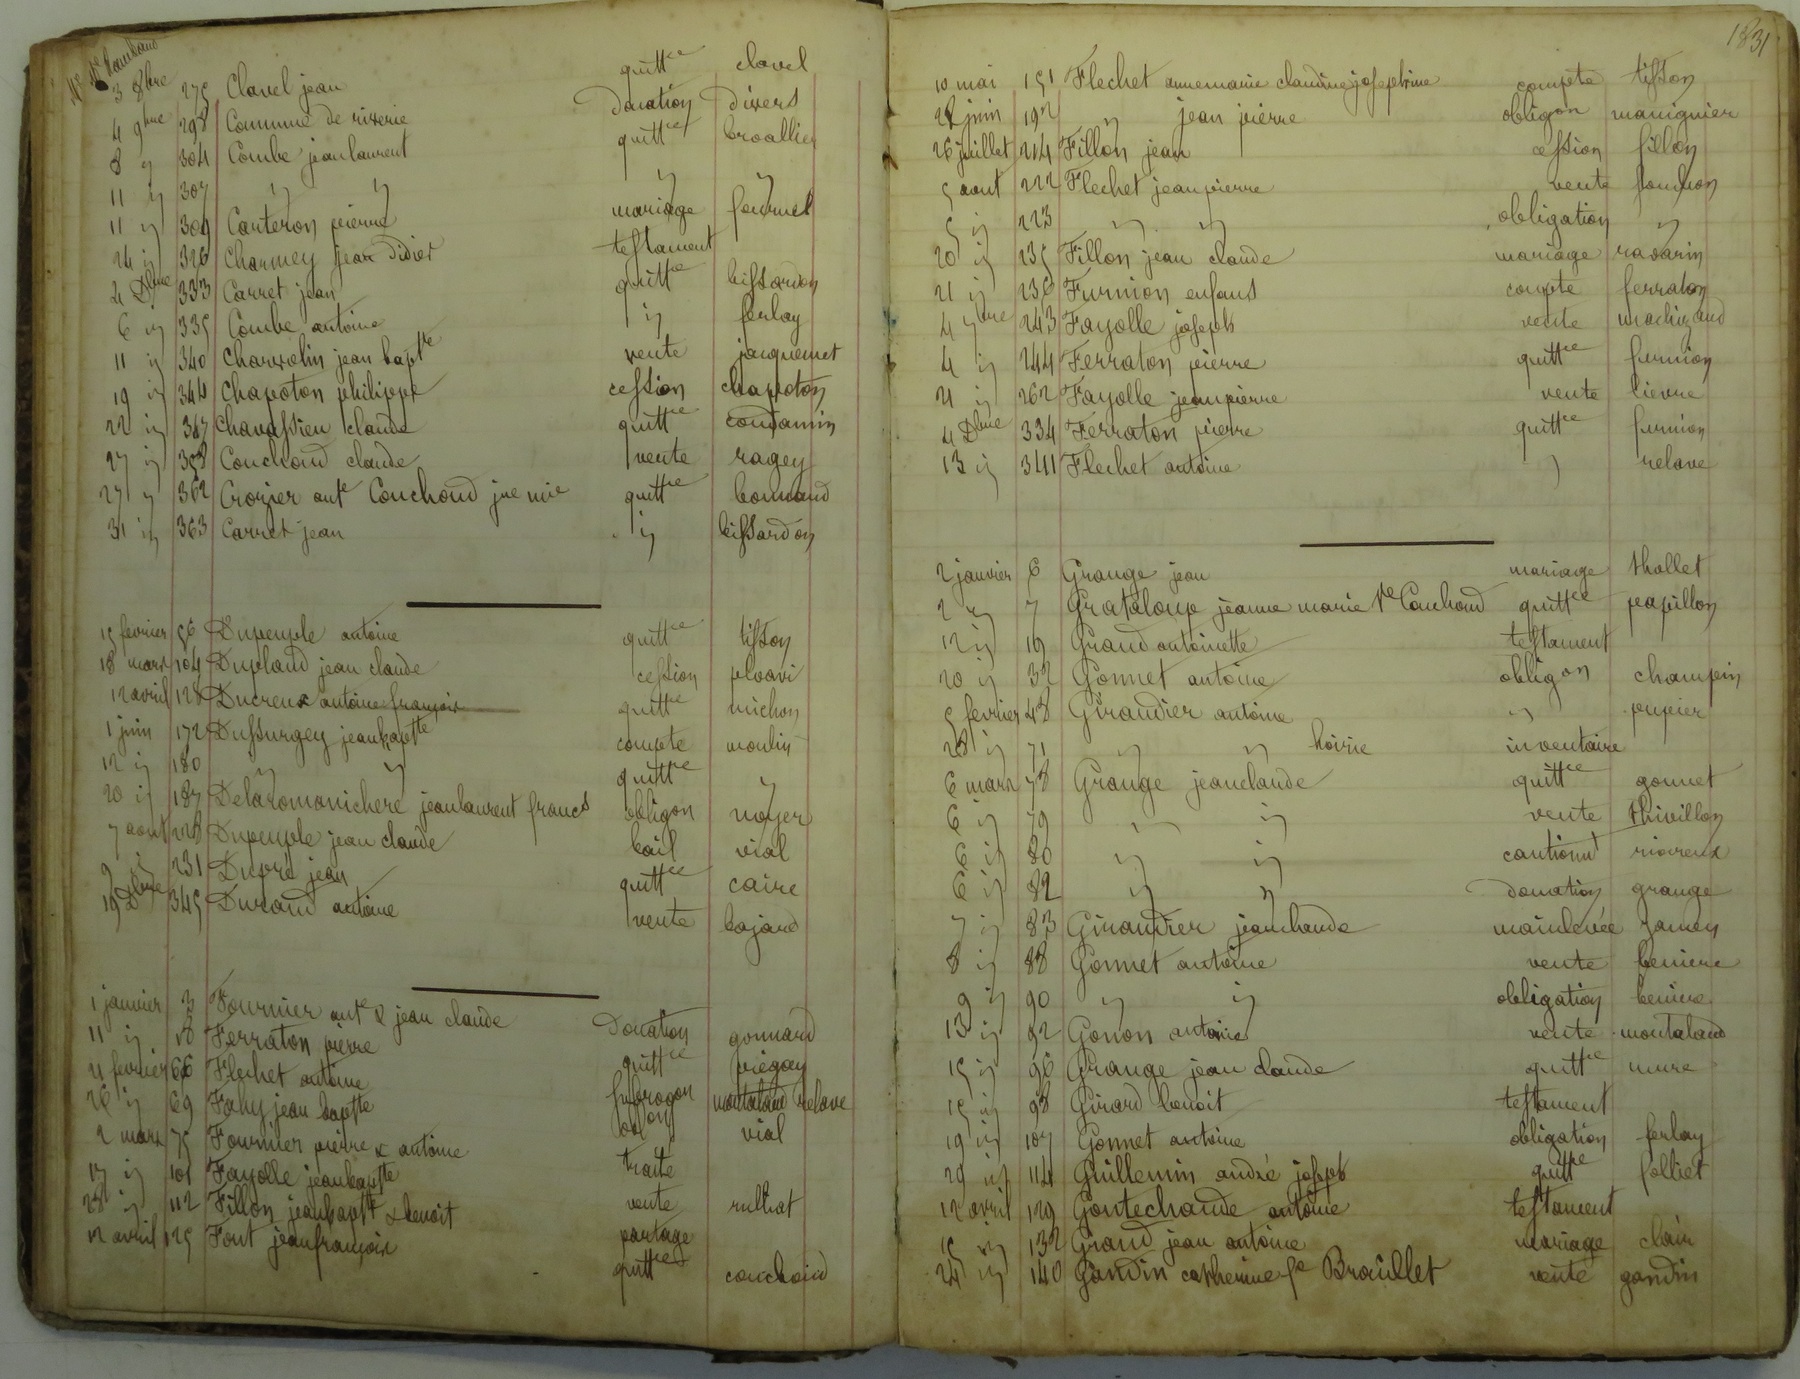 3 8bre 275 Clavel jean quittce clavel
4 9bre 298 Commune de riverie Donation divers
8 " 304 Combe jean laurent quittce broallier
11 " 307 " " " "
11 " 309 Carteron pierre mariage fournel
24 " 326 Charmey jean Didier testament
4 Dbre 333 Carret jean quittce bissardon
6 " 335 Combe antoine " ferlay
11 " 340 Charvolin jean bapte vente jacquemet
19 " 344 Chapoton philippe cession chapoton
22 " 347 Chavassieu claude quittce condamin
27 " 358 Couchoud claude vente ragey
27 " 362 Crozier ante Couchoud jne mie quittce bonnand
31 " 363 Carret jean " bissardon
15 fevrier 56 Dupeuple antoine quittce tisson
18 mars 104 Duplaud jean claude cession
12 avril 128 Ducreux antoine françois quittce michon
1 juin 172 Dussurgey jeanbapte compte moulin
12 " 180 " " quittce "
20 " 187 Delaromanichere jeanlaurent francs obligon noyer
7 aout 228 Dupeuple jean claude bail vial
9 " 231 Dupré jean quittce caire
19 Dbre 345 Durand antoine vente bajard
1 janvier 3 Fournier ante & jean claude Donation gonnard
11 " 18 Ferraton pierre quittce piegay
21 fevrier 66 Flechet antoine montaland relave
26 " 69 Fahy jean bapte vial
2 mars 75 Fournier pierre & antoine traité
17 " 101 Fayolle jeanbapte vente rulliat
28 " 112 Fillon jeanbapte & benoit partage
12 avril 125 Font jeanfrançois quittce couchoud
1831
10 mai 151 Flechet annemarie claudine josephine compte tisson
28 juin 192 " jean pierre obligon manignier
26 juillet 214 Fillon jean cession fillon
5 aout 222 Flechet jeanpierre vente
5 " 223 " " obligation "
20 " 235 Fillon jean claude mariage ravarin
21 " 236 Furnion enfans compte ferraton
4 7bre 243 Fayolle joseph vente machizaud
4 " 244 Ferraton pierre quittce furnion
21 " 262 Fayolle jeanpierre vente lievre
4 Dbre 334 Ferraton pierre quittce furnion
13 " 341 Flechet antoine " relave
2 janvier 6 Grange jean mariage thollet
2 " 7 Grataloup jeanne marie ve Couchoud quittce papillon
12 " 19 Graud antoinette testament
20 " 32 Gonnet antoine obligon champin
5 fevrier 48 Giraudier antoine " pupier
28 " 71 " " hoirie inventaire
6 mars 78 Grange jeanclaude quittce gonnet
6 " 79 " " vente thivillon
6 " 80 " " cautionnt rivoreux
6 " 82 " " Donation grange
7 " 83 Giraudier jeanclaude mainlevée jamey
8 " 88 Gonnet antoine vente beniere
9 " 90 " " obligation beniere
13 " 92 Gonon antoine vente montaland
15 " 96 Grange jean claude quittce mure
15 " 98 Girard benoit testament
19 " 107 Gonnet antoine obligation ferlay
29 " 114 Guillemin andré joseph quittce folliet
12 avril 129 Gontechaude antoine testament
15 " 132 Grand jean antoine mariage clair
24 " 140 Gandin catherine fe Broullet vente gandin